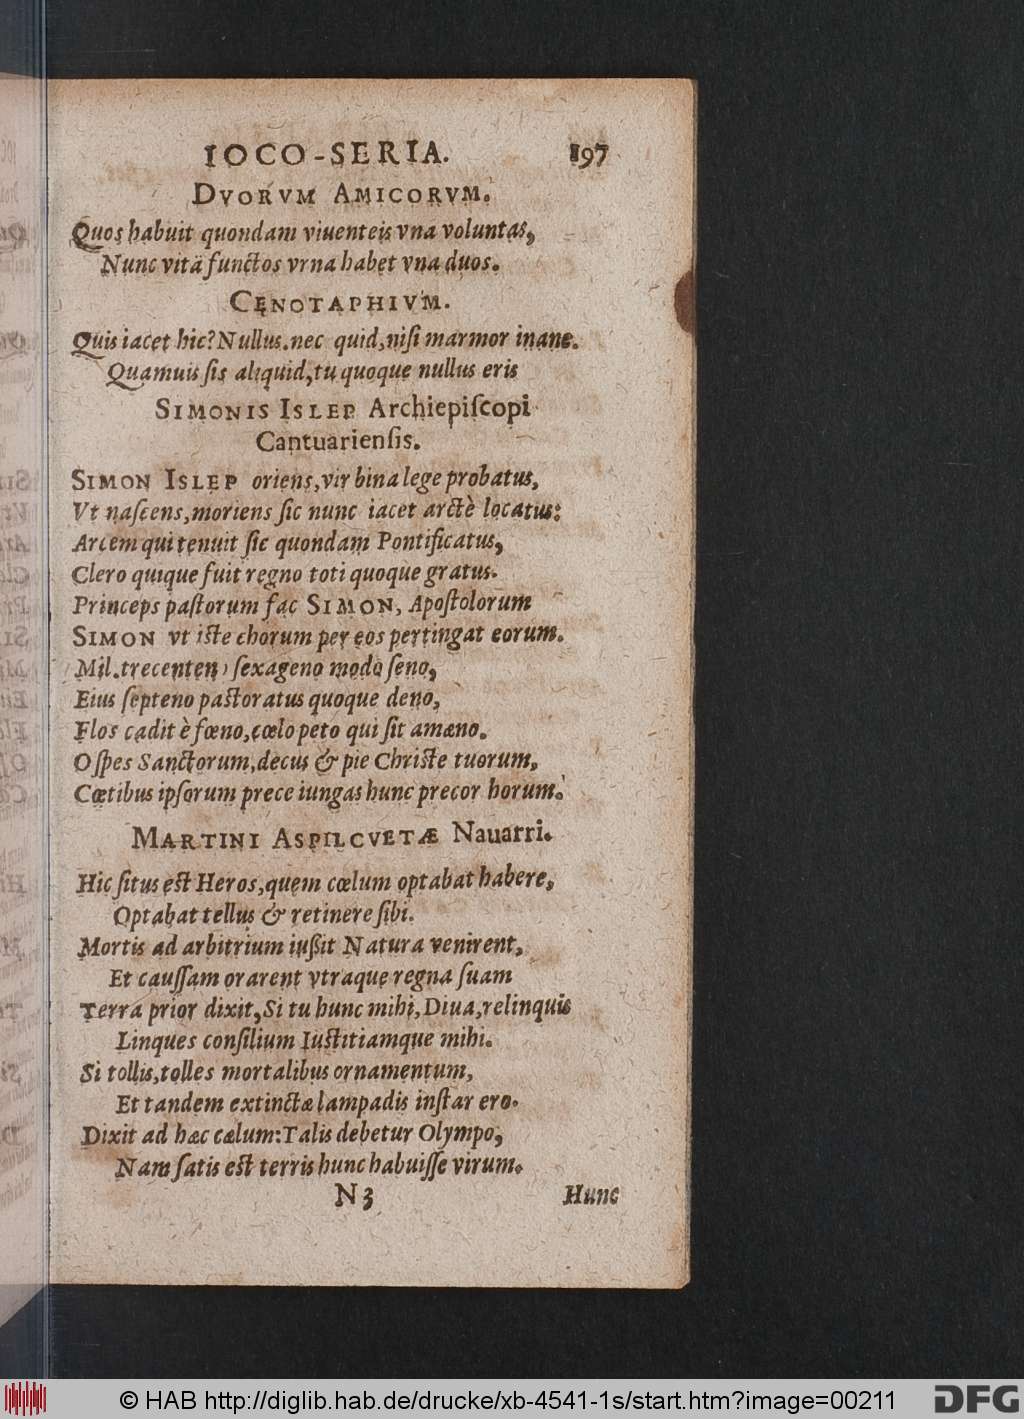 IOCO-SERIA. 197
DVORVM AMICORVM.
Quos habuit quondam viuenteis vna voluntas,
Nunc vitã functos vrna habet vna duos.
CENOTAPHIVM.
Quis iacet hic? Nullus. nec quid, niſi marmor inane.
Quamuis ſis aliquid, tu quoque nullus eris
SIMONIS ISLEP Archiepiſcopi
Cantuarienſis.
SIMON ISLEP oriens, vir bina lege probatus,
Vt naſcens, moriens ſic nunc iacet arctè locatus:
Arcem qui tenuit ſic quondam Pontificatus,
Clero quique fuit regno toti quoque gratus.
Princeps paſtorum fac SIMON, Apoſtolorum
SIMON vt iſte chorum per eos pertingat eorum.
Mil. trecenteno ſexageno modo ſeno,
Eius ſepteno paſtoratus quoque deno,
Flos cadit è fœno, cœlo peto qui ſit amæno.
O ſpes Sanctorum, decus & pie Chriſte tuorum,
Cœtibus ipſorum prece iungas hunc precor horum.
MARTINI ASPILCVETÆ Nauarri.
Hic ſitus eſt Heros, quem cœlum optabat habere,
Optabat tellus & retinere ſibi.
Mortis ad arbitrium iußit Natura venirent,
Et cauſſam orarent vtraque regna ſuam
Terra prior dixit, Si tu hunc mihi, Diua, relinquis
Linques conſilium Iuſtitiamque mihi.
Si tollis, tolles mortalibus ornamentum,
Et tandem extinctæ lampadis inſtar ero.
Dixit ad hæc cælum: Talis debetur Olympo,
Nam ſatis eſt terris hunc habuiſſe virum.
N 3 Hunc
© HAB http://diglib.hab.de/drucke/xb-4541-1s/start.htm?image=00211 DFG